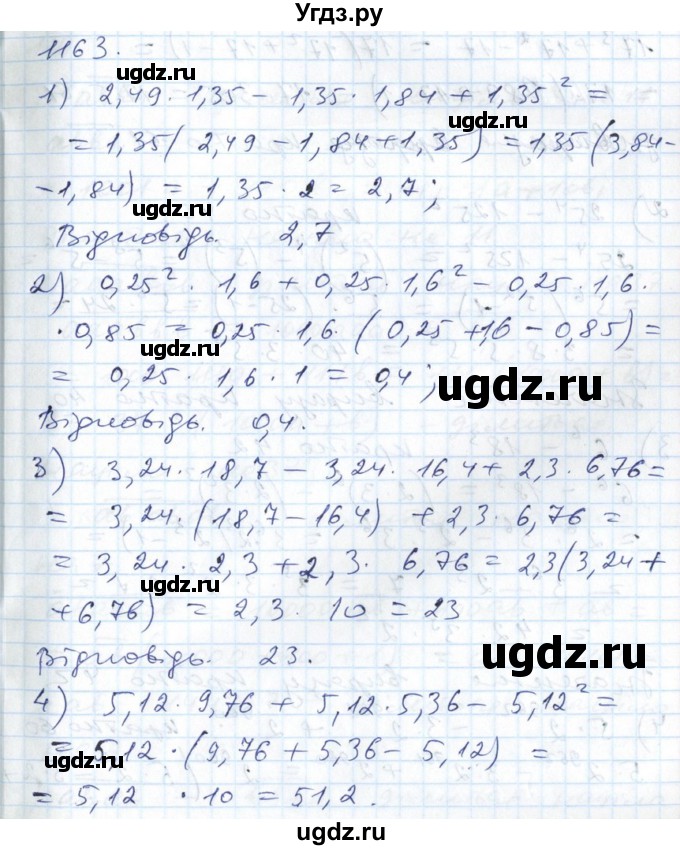 Угдз.ру
1163.
1) 2,49 · 1,35 – 1,35 · 1,84 + 1,35² =
ugdz.ru
= 1,35( 2,49 – 1,84 + 1,35) = 1,35 (3,84–
–1,84) = 1,35 · 2 = 2,7;
ugdz.ru
ugdz.ru
Відповідь. 2,7
2) 0,25² · 1,6 + 0,25 · 1,6² – 0,25 · 1,6 ·
· 0,85 = 0,25 · 1,6 · ( 0,25 + 1,6 – 0,85) =
ugdz.ru
= 0,25 · 1,6 · 1 = 0,4;
ugdz.ru
Відповідь. 0,4.
3) 3,24 · 18,7 – 3,24 · 16,4 + 2,3 · 6,76 =
ugdz.ru
= 3,24 · (18,7 – 16,4) + 2,3 · 6,76 =
= 3,24 · 2,3 + 2,3 · 6,76 = 2,3(3,24 +
ugdz.ru
+ 6,76) = 2,3 · 10 = 23
ugdz.ru
Відповідь. 23.
4) 5,12 · 9,76 + 5,12 · 5,36 – 5,12² =
= 5,12 · (9,76 + 5,36 – 5,12) =
ugdz.ru
ugdz.ru
= 5,12 · 10 = 51,2.
ugdz.ru